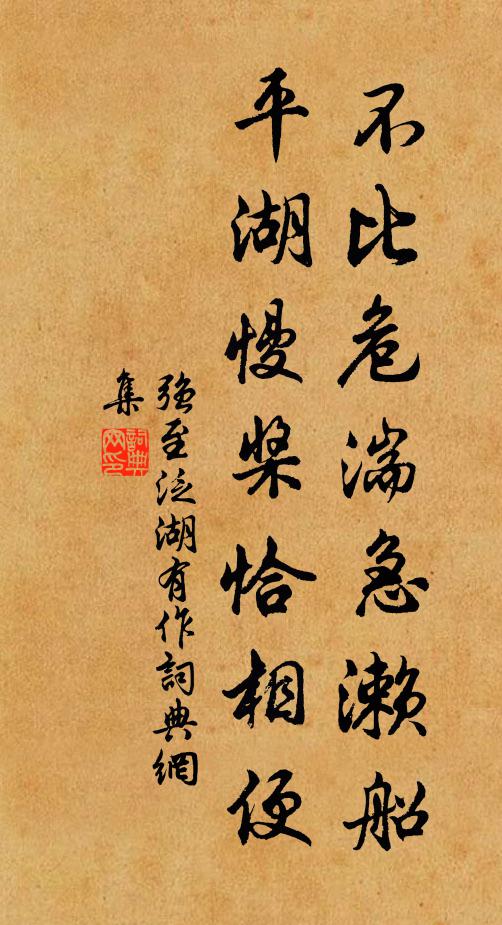 不比危湍急濑船
平湖慢桨恰相便
强至泛湖有作詞典網
集
詞典网印